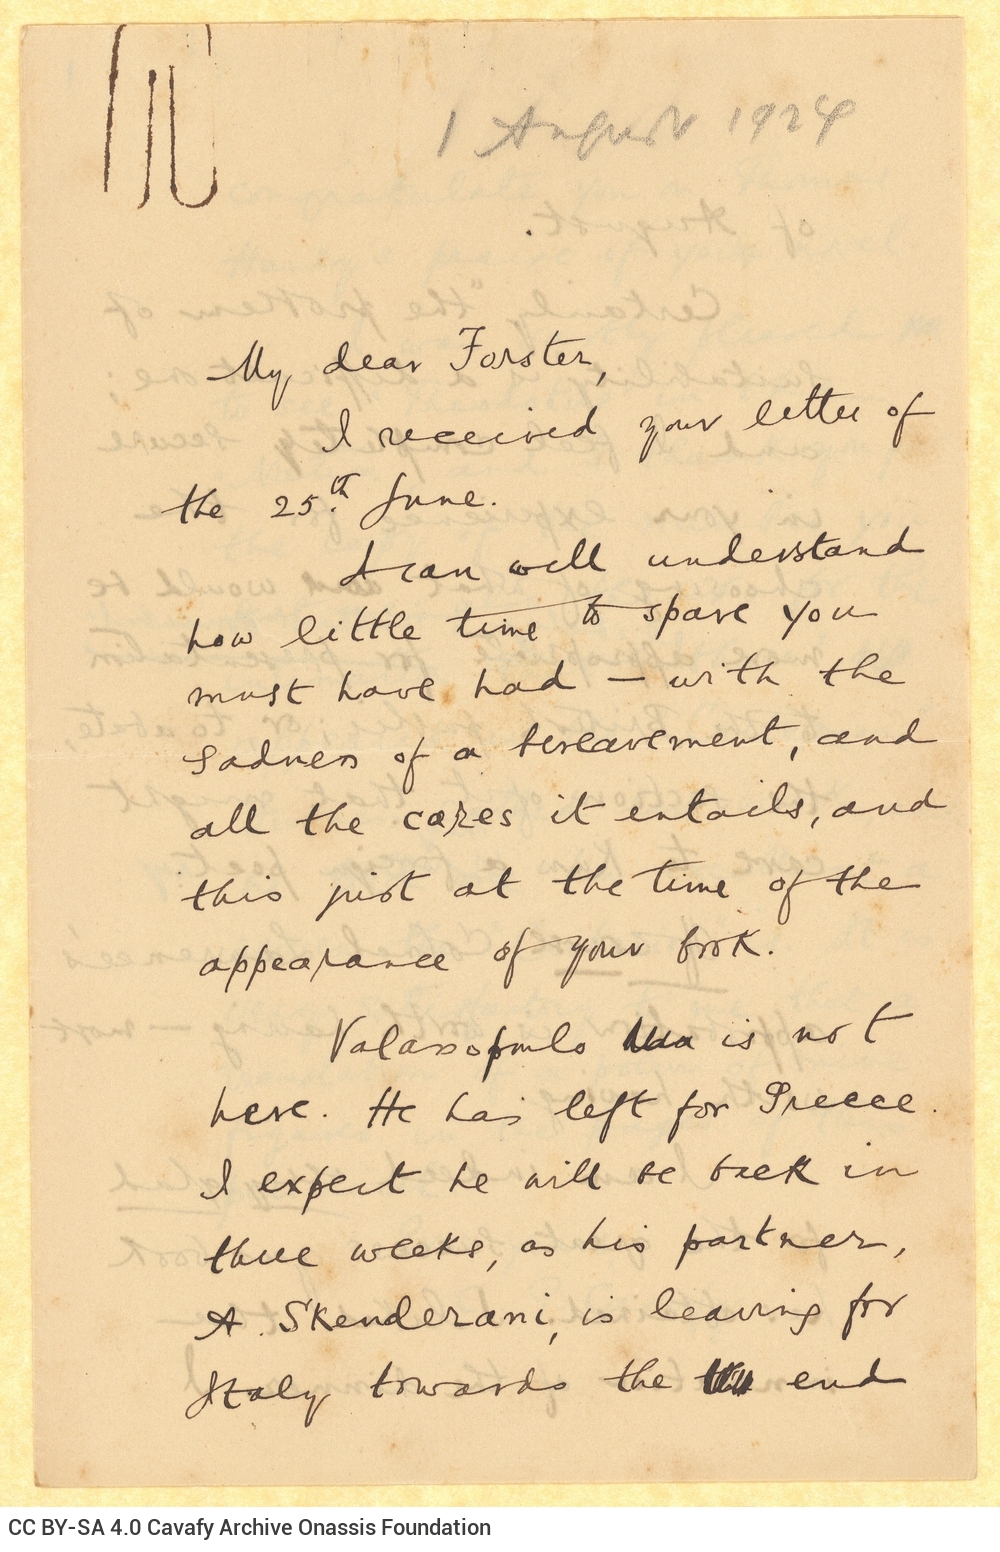 1 August 1924
My dear Forster,
I received your letter of
the 25th June.
I can well understand
how little time to spare you
must have had — with the
sadness of a bereavement, and
all the cares it entails, and
this just at the time of the
appearance of your book.
Valassopoulo is not
here. He has left for Greece.
I expect he will be back in
three weeks, as his partner,
A. Skenderani, is leaving for
Italy towards the end
CC BY-SA 4.0 Cavafy Archive Onassis Foundation